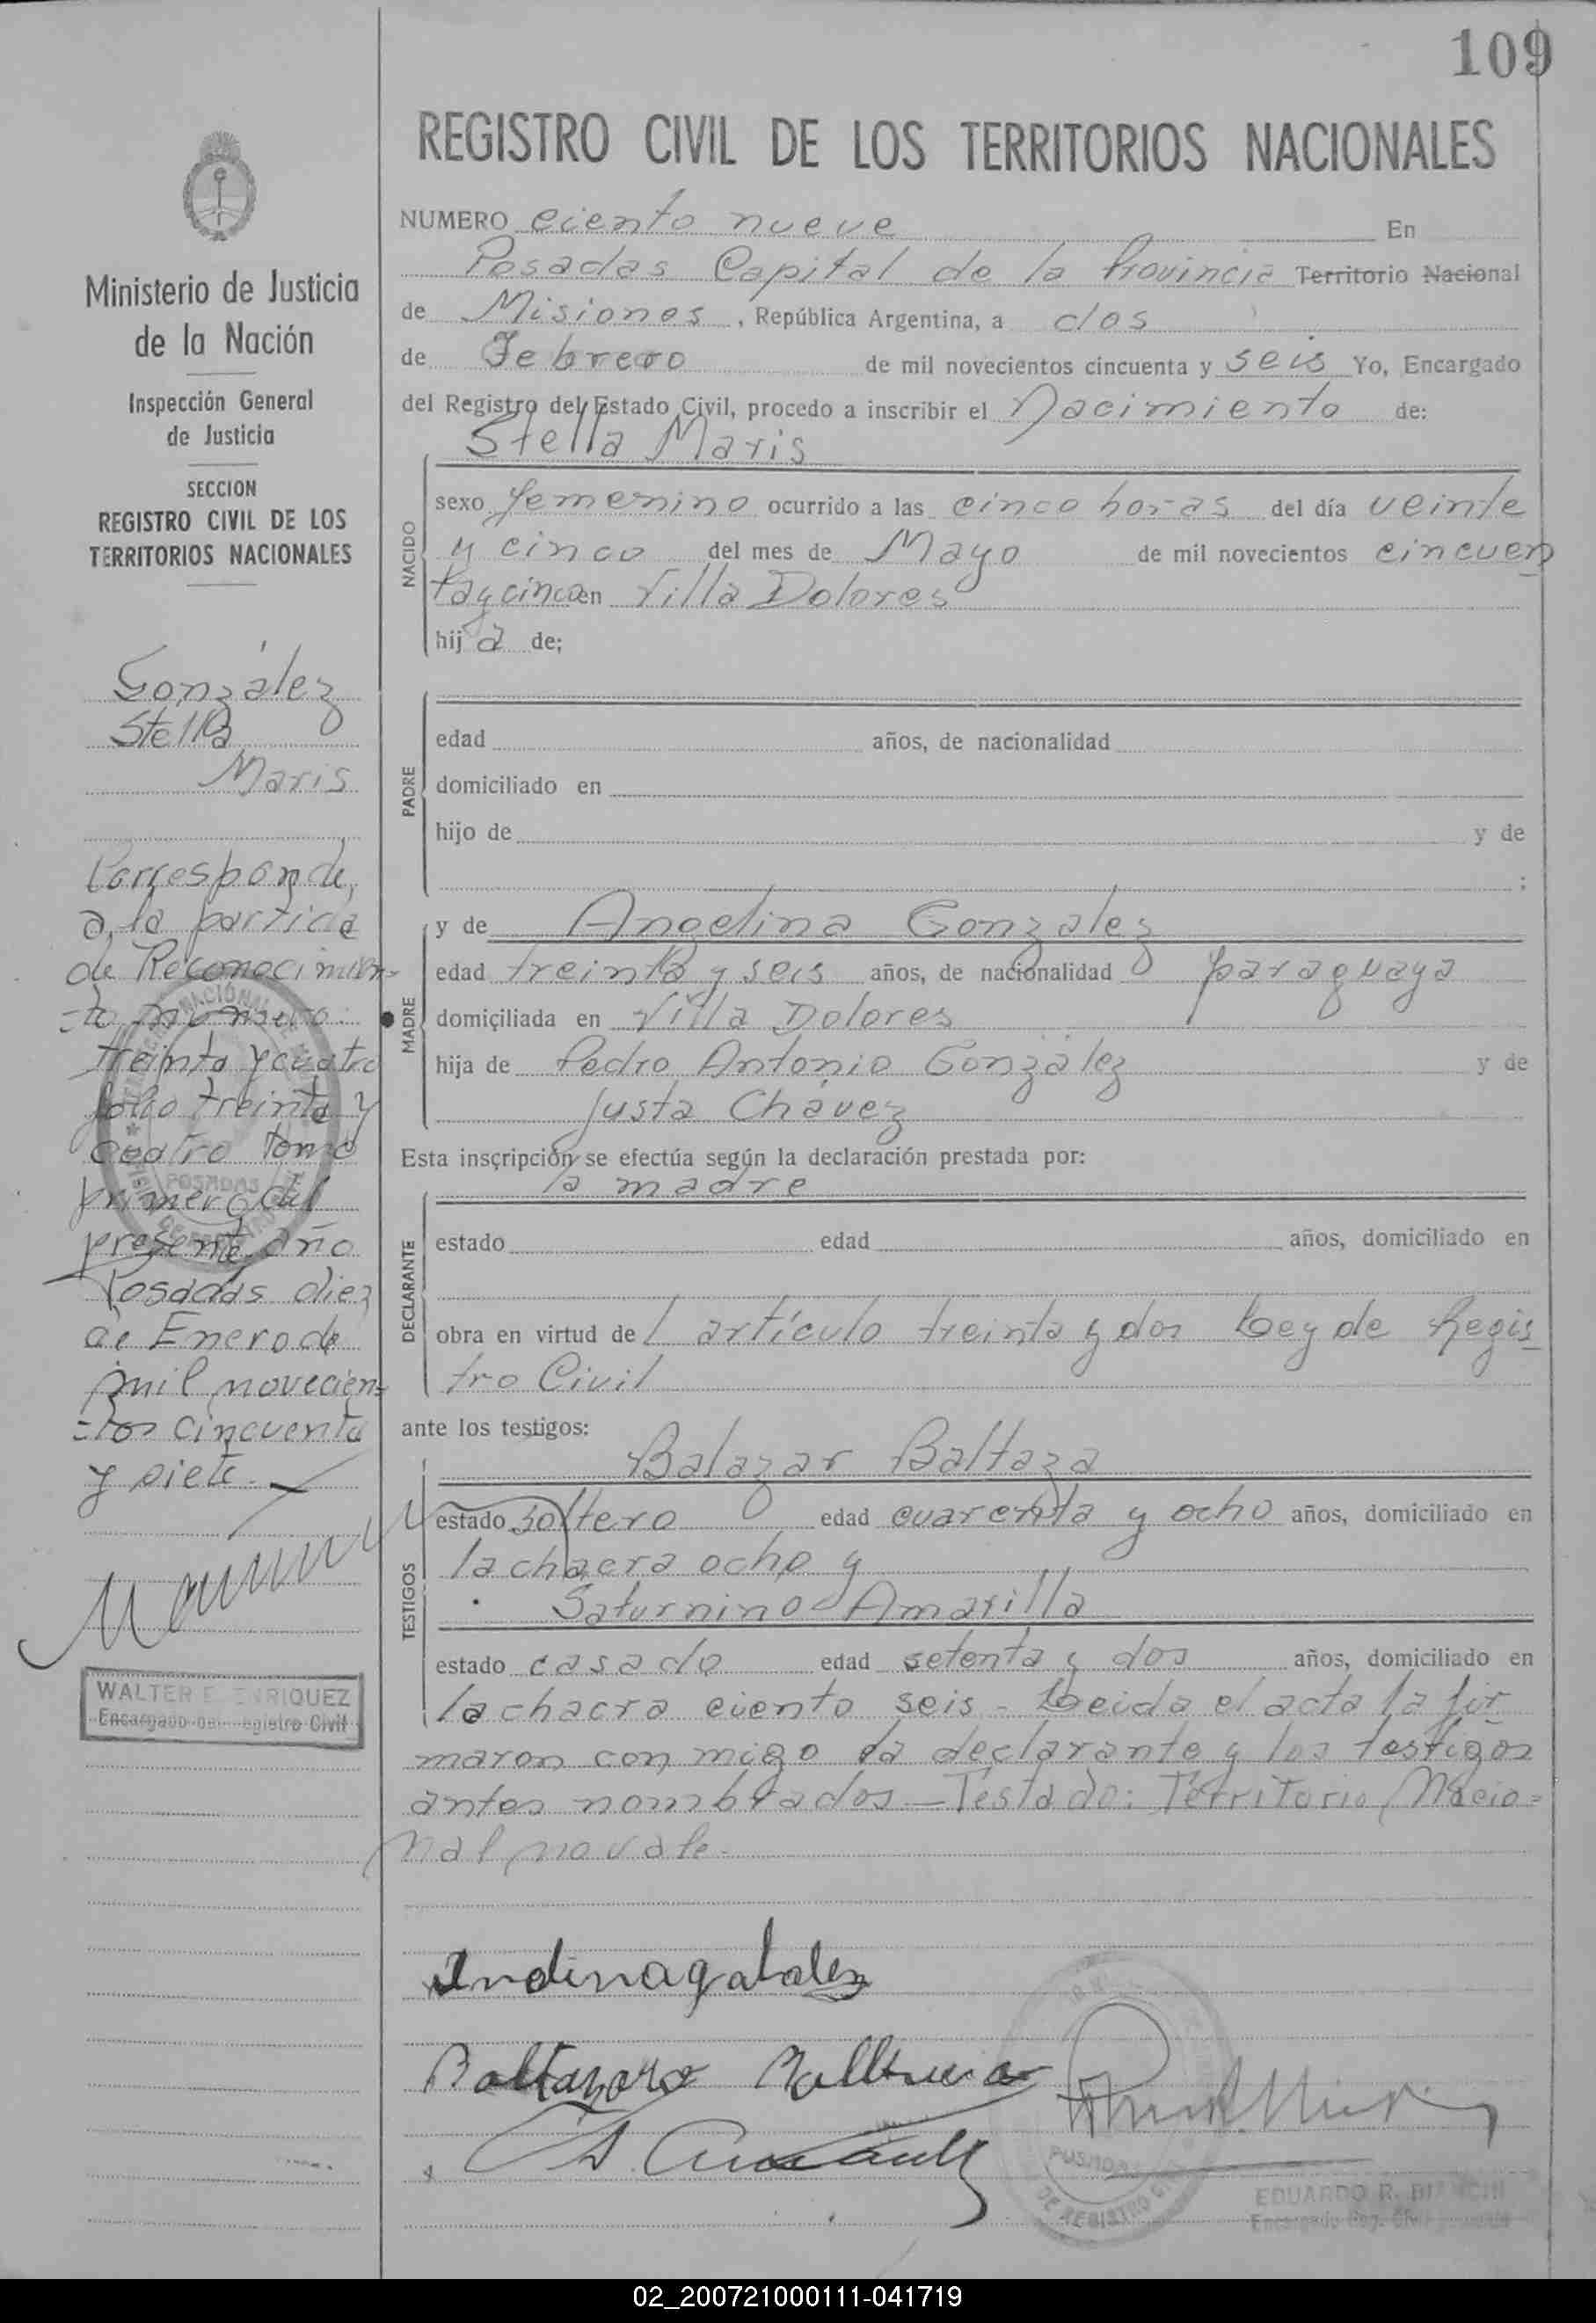 109
REGISTRO CIVIL DE LOS TERRITORIOS NACIONALES
NUMERO ciento nueve En
Posadas Capital de la Provincia Territorio Nacional
de Misiones, República Argentina, a dos
de Febrero de mil novecientos cincuenta y seis Yo, Encargado
del Registro del Estado Civil, procedo a inscribir el Nacimiento de:
Stella Maris
NACIDO
sexo femenino ocurrido a las cinco horas del día veinte
y cinco del mes de Mayo de mil novecientos cincuen
taycinco en Villa Dolores
hija de;
PADRE
edad años, de nacionalidad
domiciliado en
hijo de y de
;
MADRE
y de Angelina Gonzalez
edad treinta y seis años, de nacionalidad paraguaya
domiçiliada en Villa Dolores
hija de Pedro Antonio González y de
Justa Chavez
Esta insçripción se efectúa según la declaración prestada por:
la madre
DECLARANTE
estado edad años, domiciliado en
obra en virtud del artículo treinta y dos Ley de Regis
tro Civil
ante los testigos:
Balazar Baltaza
TESTIGOS
estado soltero edad cuarenta y ocho años, domiciliado en
la chacra ocho y
Saturnino Amarilla
estado casado edad setenta y dos años, domiciliado en
la chacra ciento seis - Leida el acta la fir
maron con migo la declarante y los testigos
antes nombrados - Testado: Territorio Nacio=
nal no vale.
Ministerio de Justicia
de la Nación
Inspección General
de Justicia
SECCION
REGISTRO CIVIL DE LOS
TERRITORIOS NACIONALES
González
Stella
Maris
Corresponde
a la partida
de Reconocimien-
-to número
treinta y cuatro
folio treinta y
cuatro tomo
primero del
presente año
Posadas diez
de Enero de
mil novecien=
=tos cincuenta
y siete.
POSADAS
WALTER E. ENRIQUEZ
Encargado del Registro Civil
POSADAS
DE REGISTRO
EDUARDO R. BIANCHI
Encargado Reg. Civil
02_200721000111-041719